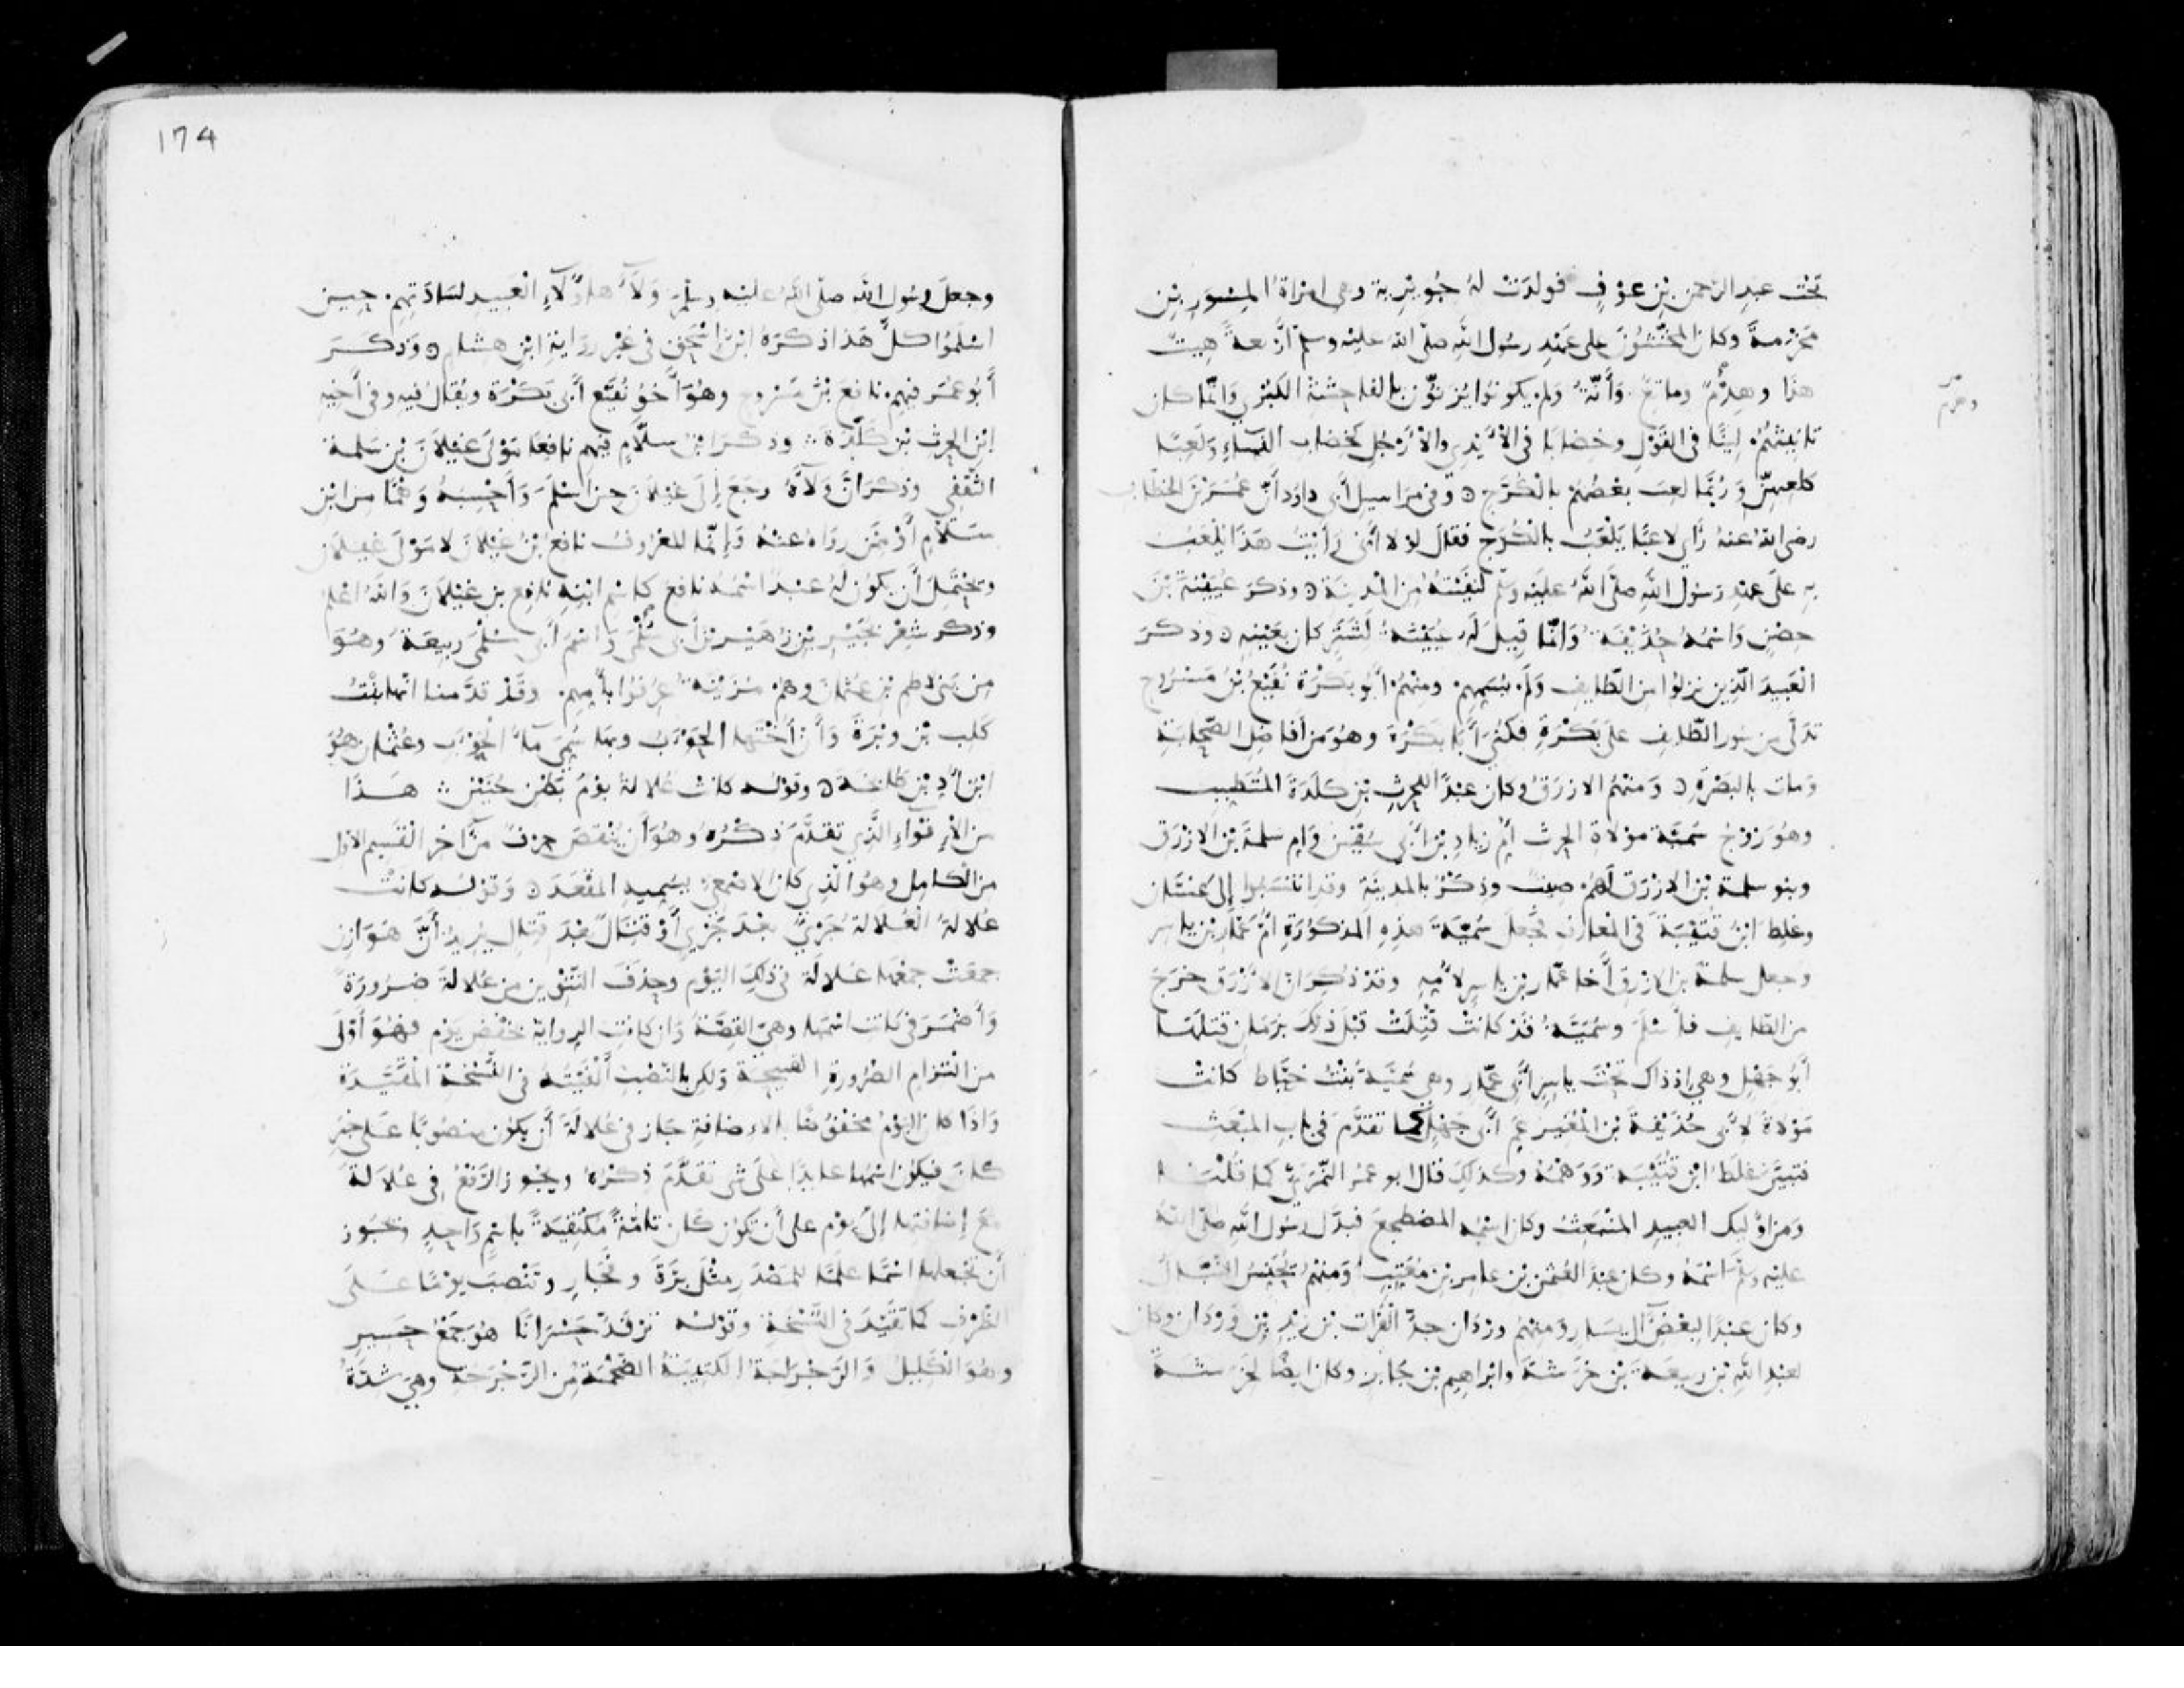 تحت عبد الرحمن بن عوف فولدت له جويرية وهي امرأة المسور بن
مخرمة وكان المخنثون على عهد رسول الله صلى الله عليه وسلم أربعة هيت
هذا وهدم وماتع وأنّة ولم يكونوا يزنون بالفاحشة الكبرى وانما كان
تانيثهم لينا في القول وخضابا في الأيدي والأرجل كخضاب النساء ولعبا
كلعبهن وربما لعب بعضهم بالكرج وفي مراسيل أبي داود أن عمر بن الخطاب
رضي الله عنه رأى لاعبا يلعب بالكرج فقال لولا أني رأيت هذا يلعب
به على عهد رسول الله صلى الله عليه وسلم لنفيته من المدينة وذكر عيينة بن
حصن واسمه حذيفة وانما قيل له عيينة لشتر كان بعينه وذكر
العبيد الذين نزلوا من الطايف ولم يسمهم ومنهم أبو بكرة نفيع بن مسروح
تدلى من سور الطايف على بكرة فكني أبا بكرة وهو من أفاضل الصحابة
ومات بالبصرة ومنهم الازرق وكان عبدا للحرث بن كلدة المتطبب
وهو زوج سمية مولاة الحرث أم زياد بن أبي سفين وام سلمة بن الازرق
وبنو سلمة بن الازرق لهم صيت وذكر بالمدينة وقد انتسبوا إلى غسان
وغلط ابن قتيبة في المعارف فجعل سمية هذه المذكورة أم عمار بن ياسر
وجعل سلمة بن الازرق أخا عمار بن ياسر لأمه وقد ذكر ان الأزرق خرج
من الطايف فأسلم وسمية قد كانت قتلت قبل ذلك بزمان قتلها
أبو جهل وهي إذ ذاك تحت ياسر أبي عمار وهي سمية بنت خباط كانت
مولاة لأبي حذيفة بن المغير عم أبي جهل كما تقدم في باب المبعث
فتبين غلط ابن قتيبة ووهمه وكذلك قال ابو عمر النمري كما قلت
ومن اوليك العبيد المنبعث وكان اسمه المضطجع فبدل رسول الله صلى الله
عليه وسلم اسمه وكان عبدا لعثمن بن عامر بن معتب ومنهم يحنس النبال
وكان عبدا لبعض آل يسار ومنهم وردان جد الفرات بن زيد بن وردان وكان
لعبد الله بن ربيعة بن خرشة وابراهيم بن جابر وكان ايضا لخرشة
وهدم
174
وجعل رسول الله صلى الله عليه وسلم ولاء هاؤلاء العبيد لسادتهم حين
اسلموا كل هذا ذكره ابن اسحق في غير رواية ابن هشام وذكر
أبو عمر فيهم نافع بن مسروح وهو أخو نفيع أبي بكرة ويقال فيه وفي أخيه
ابن الحرث بن كلدة وذكر ابن سلام فيهم نافعا مولى غيلان بن سلمة
الثقفي وذكر ان ولاءه رجع إلى غيلان حين اسلم وأحسبه وهما من ابن
سلام أو ممن رواه عنه وإنما المعروف نافع بن غيلان لا مولى غيلان
ويحتمل أن يكون له عبد اسمه نافع كاسم ابنه نافع بن غيلان والله اعلم
وذكر شعر بجير بن زهير بن أبي سلمى واسم أبي سلمى ربيعة وهو
من بني لاطم بن عثمان وهم مزينة عرفوا بأمهم وقد قدمنا انها بنت
كلب بن وبرة وأن أختها الحوءب وبها سمي ماء الحوءب وعثمان هو
ابن أد بن طابخة وقوله كانت علالة يوم بطن حنين هذا
من الإقواء الذي تقدم ذكره وهو أن ينقص حرف من آخر القسيم الأول
من الكامل وهو الذي كان الاصمعي يسميه المقعد وقوله كانت
علالة العلالة جري بعد جري أو قتال بعد قتال يريد أن هوازن
جمعت جمعها علالة في ذلك اليوم وحذف التنوين من علالة ضرورة
وأضمر في كانت اسمها وهي القصة وان كانت الرواية خفض يوم فهو أولى
من التزام الضرورة القبيحة ولكن بالنصب ألفيته في النسخة المقيدة
واذا كان اليوم مخفوضا بالاضافة جاز في علالة أن يكون منصوبا على خبر
كان فيكون اسمها عايدا على شي تقدم ذكره ويجوز الرفع في علالة
مع إضافتها إلى يوم على أن تكون كان تامة مكتفية باسم واحد ويجوز
أن تجعلها اسما علما للمصدر مثل برة وفجار وتنصب يوما على
الظرف كما تقيد في النسخة وقوله ترقد حسرانا هو جمع حسير
وهو الكليل والرجراجة الكتيبة الضخمة من الرجرجة وهي شدة